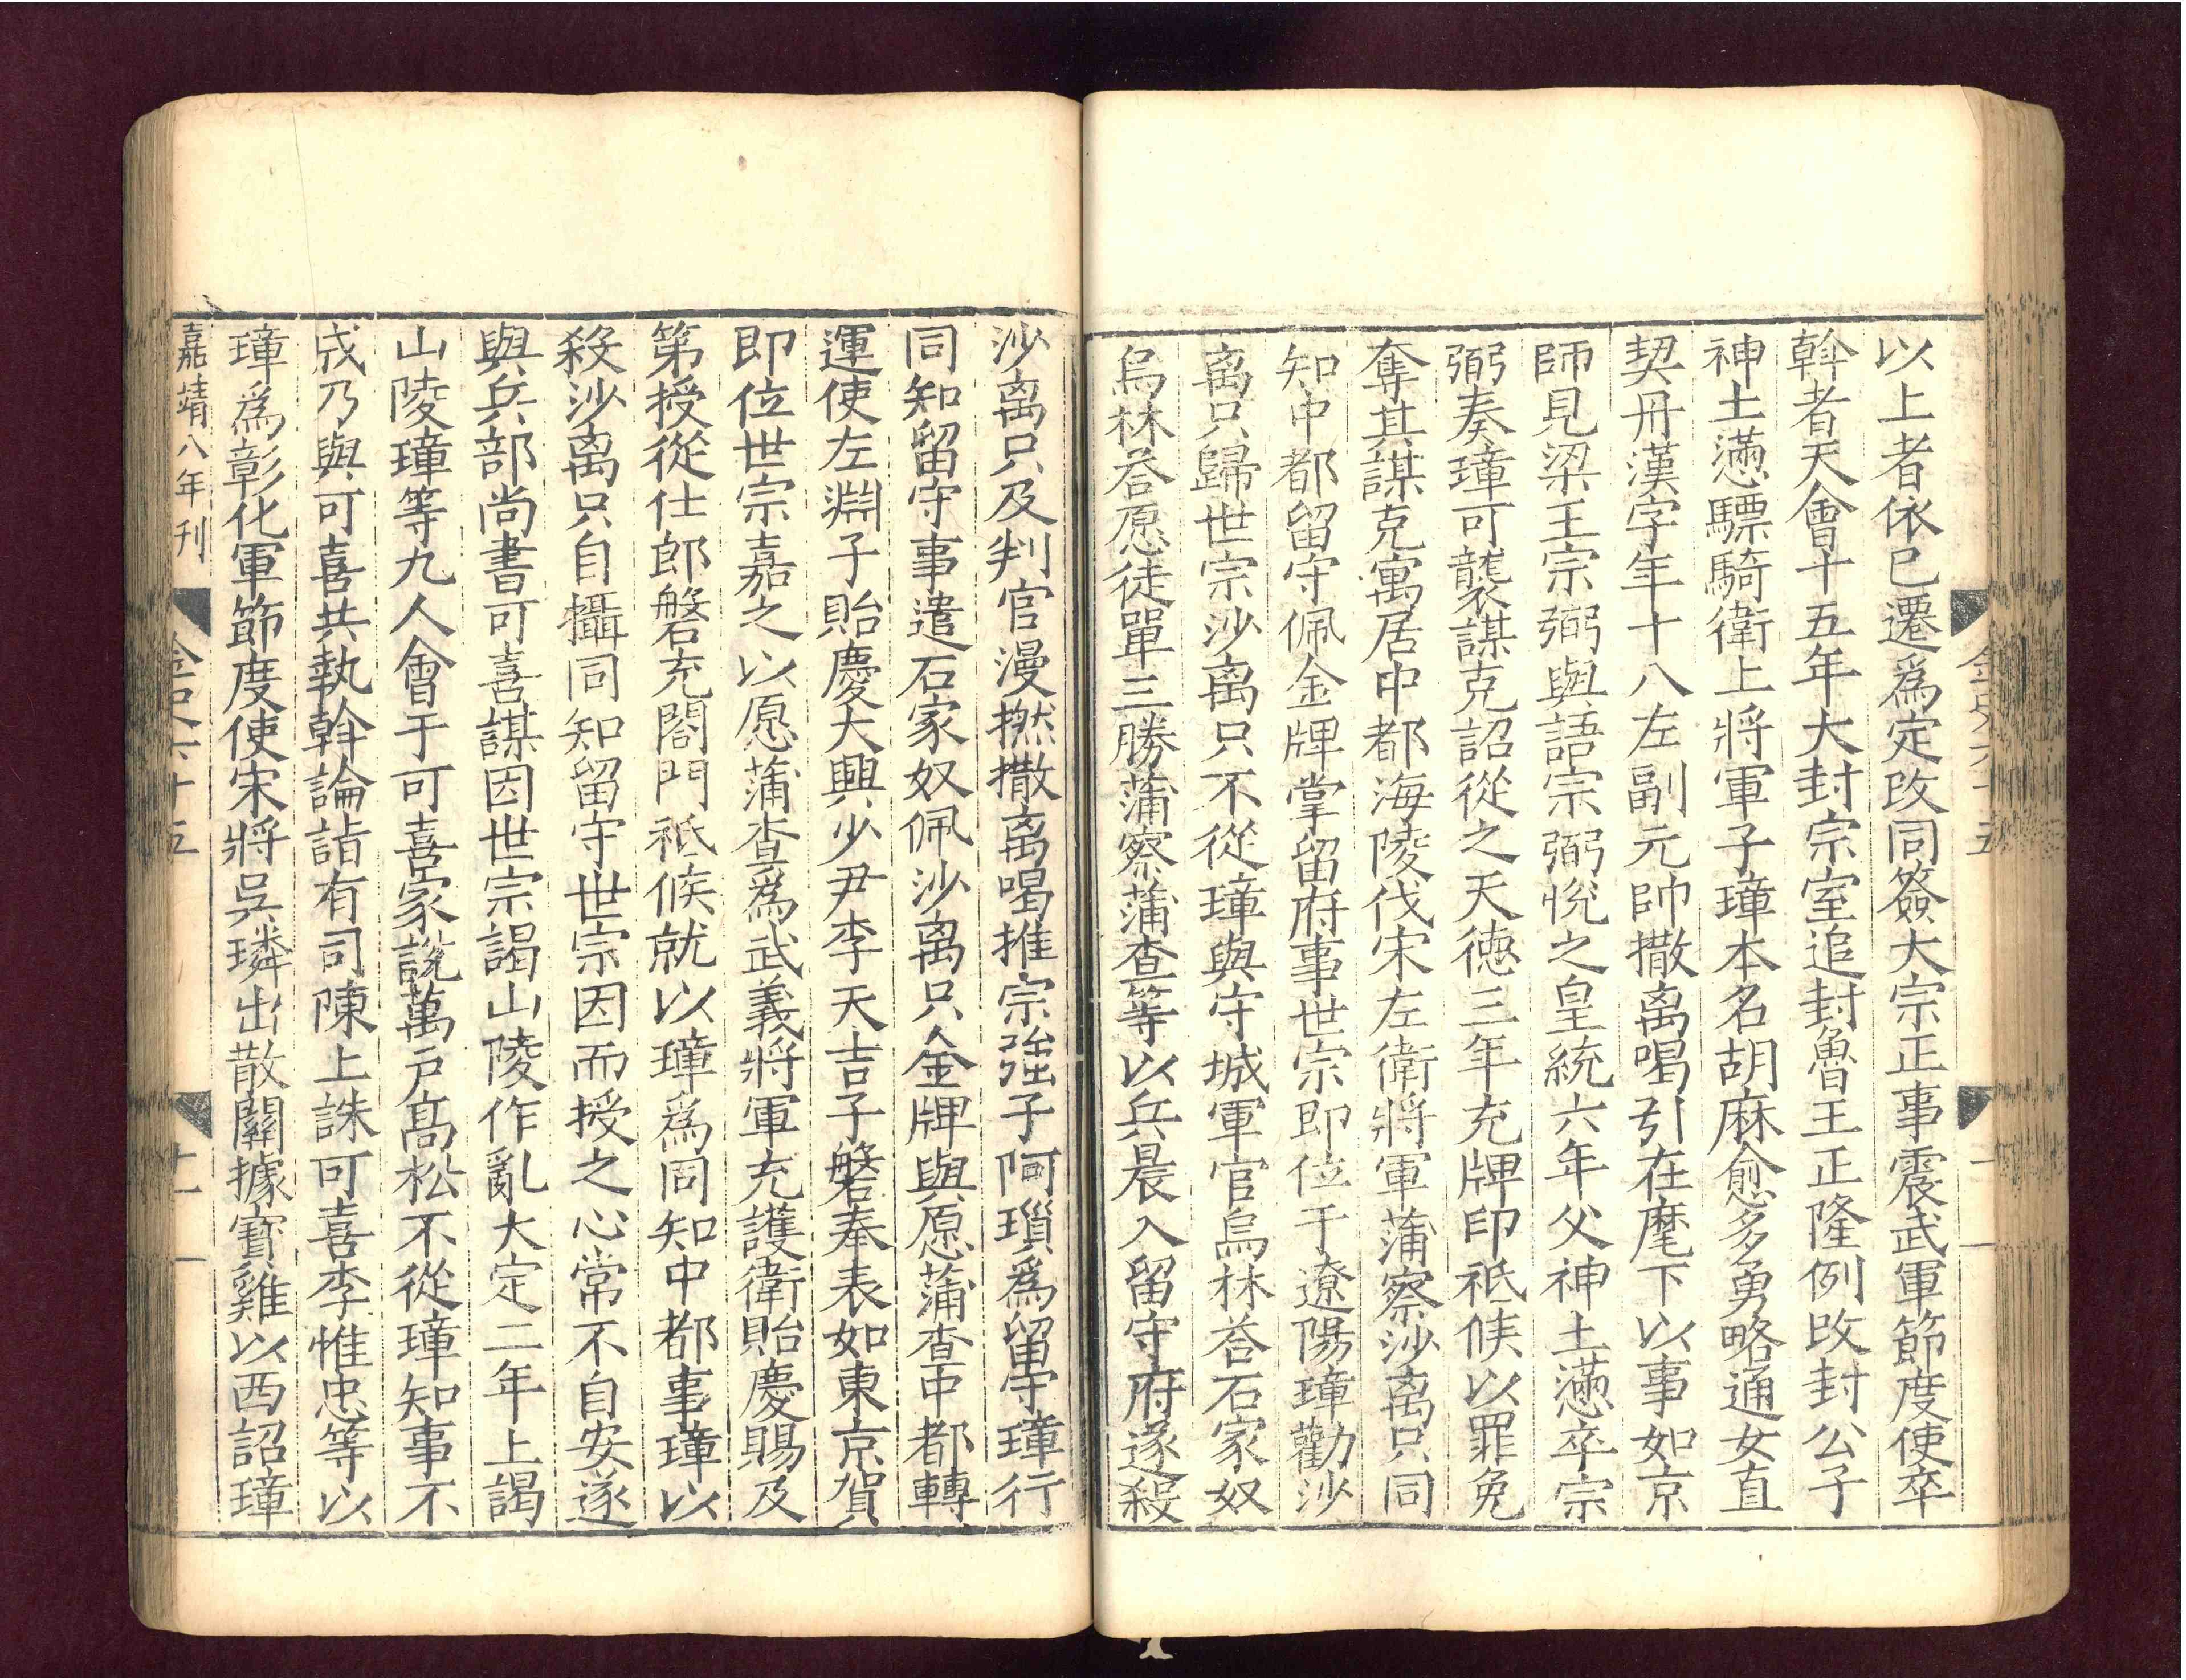 以上者依已遷爲定改同簽大宗正事震武軍節度使卒
斡者天會十五年大封宗室追封魯王正隆例改封公子
神土懣驃騎衛上將軍子璋本名胡麻愈多勇略通女直
契丹漢字年十八左副元帥撒离喝引在麾下以事如京
師見梁王宗弼與語宗弼悅之皇統六年父神土懣卒宗
弼奏璋可襲謀克詔從之天德三年充牌印祗候以罪免
奪其謀克寓居中都海陵伐宋左衛將軍蒲察沙离只同
知中都留守佩金牌掌留府事世宗即位于遼陽璋勸沙
离只歸世宗沙离只不從璋與守城軍官烏林荅石家奴
烏林荅愿徒單三勝蒲察蒲查等以兵晨入留守府遂殺
沙离只及判官漫撚撒离喝推宗強子阿瑣爲留守璋行
同知留守事遣石家奴佩沙离只金牌與愿蒲查中都轉
運使左淵子貽慶大興少尹李天吉子磐奉表如東京賀
即位世宗嘉之以愿蒲查爲武義將軍充護衛貽慶賜及
第授從仕郎磐充閤門祗候就以璋爲同知中都事璋以
殺沙离只自攝同知留守世宗因而授之心常不自安遂
與兵部尚書可喜謀因世宗謁山陵作亂大定二年上謁
山陵璋等九人會于可喜家說萬戶高松不從璋知事不
成乃與可喜共執斡論詣有司陳上誅可喜李惟忠等以
璋爲彰化軍節度使宋將吳璘出散關據寶雞以西詔璋
嘉靖八年刊
金史六十五
十一